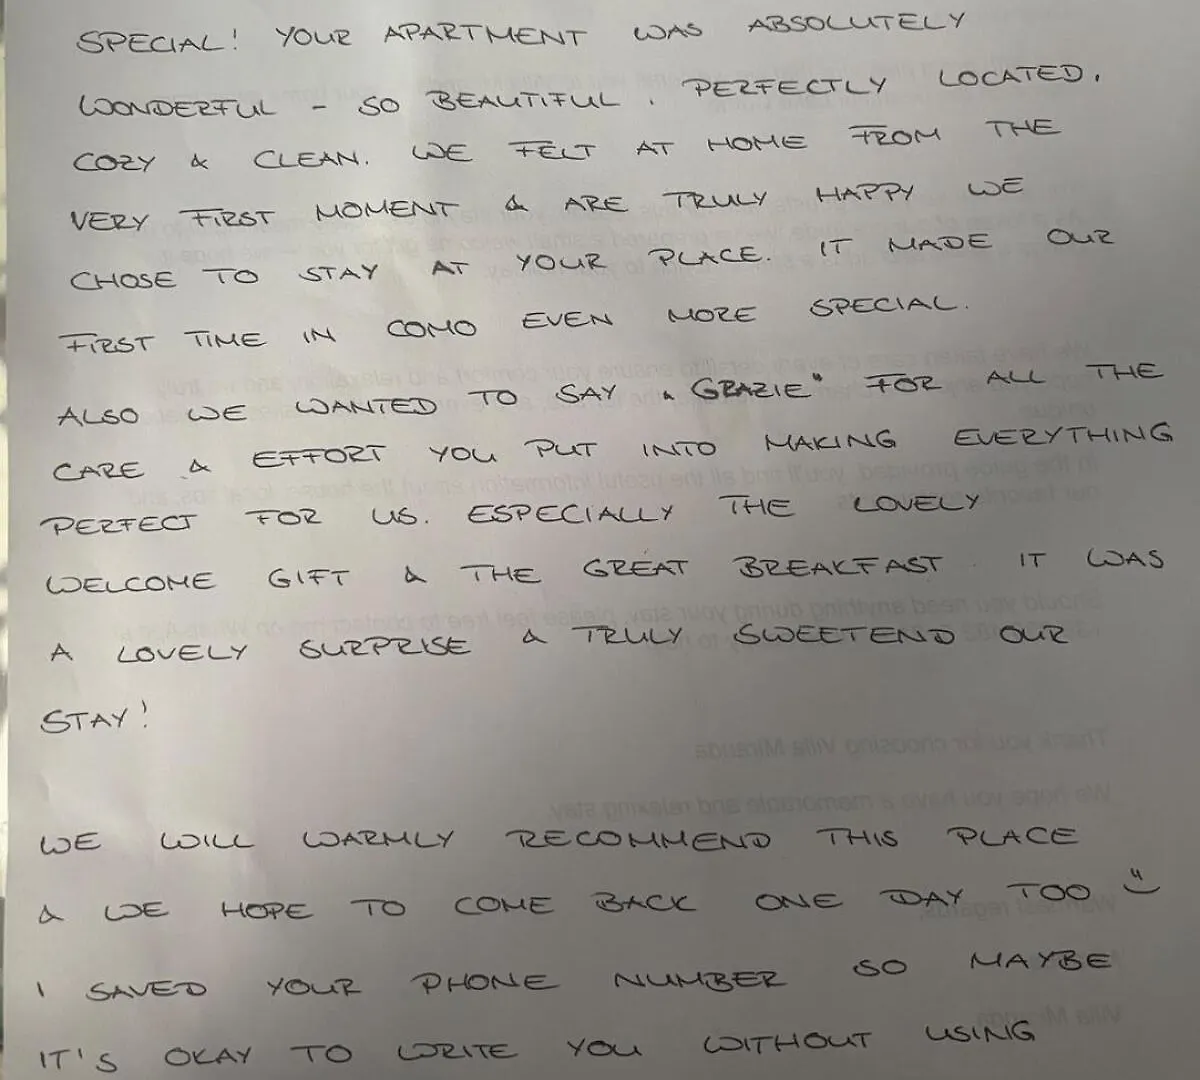 SPECIAL! YOUR APARTMENT WAS ABSOLUTELY
WONDERFUL - SO BEAUTIFUL. PERFECTLY LOCATED,
COZY & CLEAN. WE FELT AT HOME FROM THE
VERY FIRST MOMENT & ARE TRULY HAPPY WE
CHOSE TO STAY AT YOUR PLACE. IT MADE OUR
FIRST TIME IN COMO EVEN MORE SPECIAL.
ALSO WE WANTED TO SAY „GRAZIE" FOR ALL THE
CARE & EFFORT YOU PUT INTO MAKING EVERYTHING
PERFECT FOR US. ESPECIALLY THE LOVELY
WELCOME GIFT & THE GREAT BREAKFAST. IT WAS
A LOVELY SURPRISE & TRULY SWEETEND OUR
STAY!
Thank you for choosing Villa Miranda
We hope you have a memorable and relaxing stay
WE WILL WARMLY RECOMMEND THIS PLACE
& WE HOPE TO COME BACK ONE DAY TOO
I SAVED YOUR PHONE NUMBER SO MAYBE
IT'S OKAY TO WRITE YOU WITHOUT USING